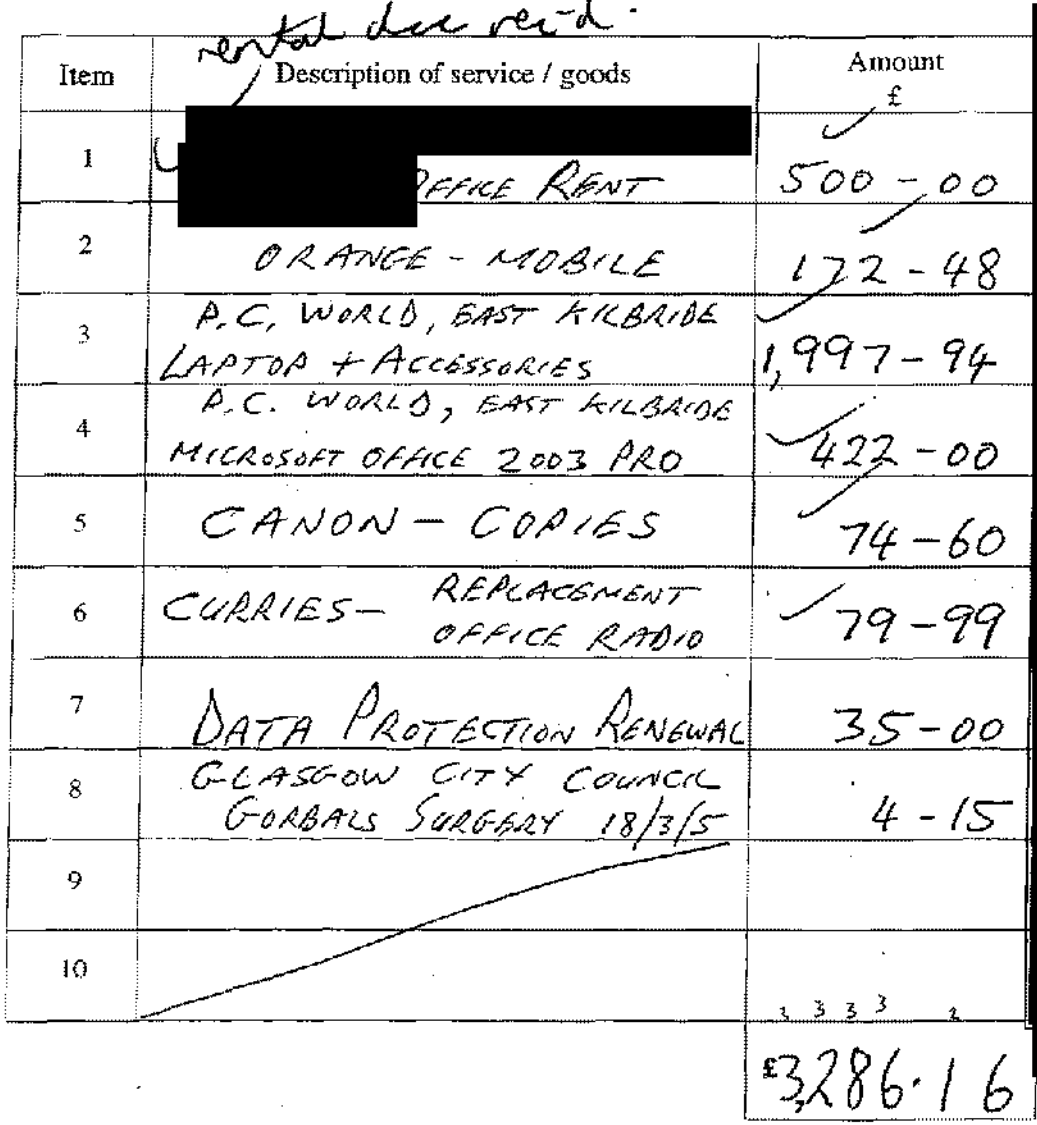 rental due rec'd.
Item Description of service / goods Amount
£
1 OFFICE RENT 500-00
2 ORANGE - MOBILE 172-48
P.C. WORLD, EAST KILBRIDE
3 LAPTOP + ACCESSORIES 1,997-94
P.C. WORLD, EAST KILBRIDE
4 MICROSOFT OFFICE 2003 PRO 422-00
5 CANON - COPIES 74-60
6 CURRIES - REPLACEMENT
OFFICE RADIO 79-99
7 DATA PROTECTION RENEWAL 35-00
8 GLASGOW CITY COUNCIL
GORBALS SURGERY 18/3/5 4-15
9
10
3 3 3 2
£3,286.16